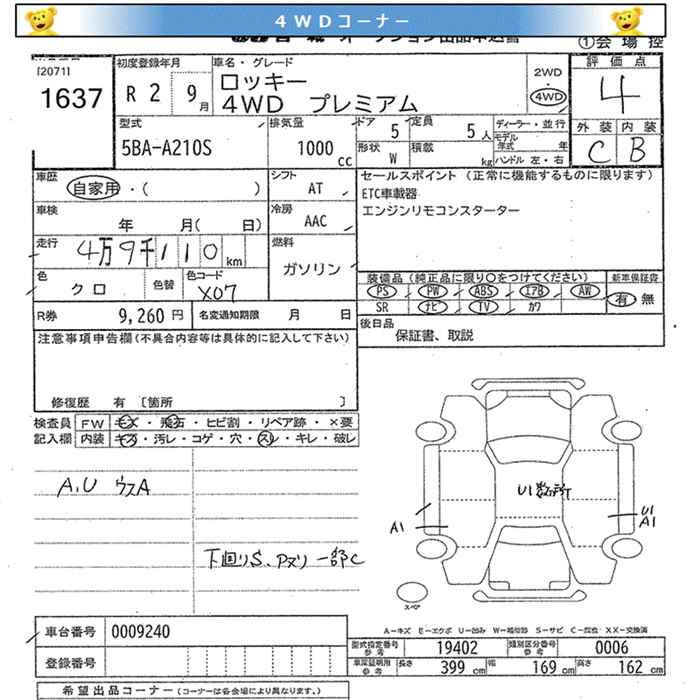 4WDコーナー
①会場控
[2071]
1637
初度登録年月
R 2 9月
車名・グレード
ロッキー
4WD プレミアム
2WD
・
4WD
評価点
4
外装 内装
C B
型式
5BA-A210S
排気量
1000 cc
ドア 5
定員 5人
形状 W
積載 kg
ディーラー・並行
モデル年式 年
ハンドル 左・右
車歴
自家用・( )
シフト
AT
車検
年 月( 日)
冷房
AAC
走行
4万9千110km
燃料
ガソリン
色
クロ
色替
色コード
X07
R券 9,260 円
名変通知期限 月 日
セールスポイント (正常に機能するものに限ります)
ETC車載器
エンジンリモコンスターター
装備品 (純正品に限り○をつけてください)
PS PW ABS エアB AW
SR ナビ TV カワ
新車保証書
有 無
後日品
保証書、取説
注意事項申告欄 (不具合内容等は具体的に記入して下さい)
修復歴 有 [箇所 ]
検査員記入欄
FW キズ・飛石・ヒビ割・リペア跡・×要
内装 キズ・汚レ・コゲ・穴・スレ・キレ・破レ
A,U ウスA
下回りS、アヌリ 一部C
U1数ヶ所
A1
U1
A1
スペア
A-キズ E-エクボ U-凹み W-補修跡 S-サビ C-腐食 XX-交換済
車台番号 0009240
登録番号
型式指定番号 参考 19402
類別区分番号 参考 0006
車庫証明用 参考 長さ 399 cm 幅 169 cm 高さ 162 cm
希望出品コーナー (コーナーは各会場により異なります。)